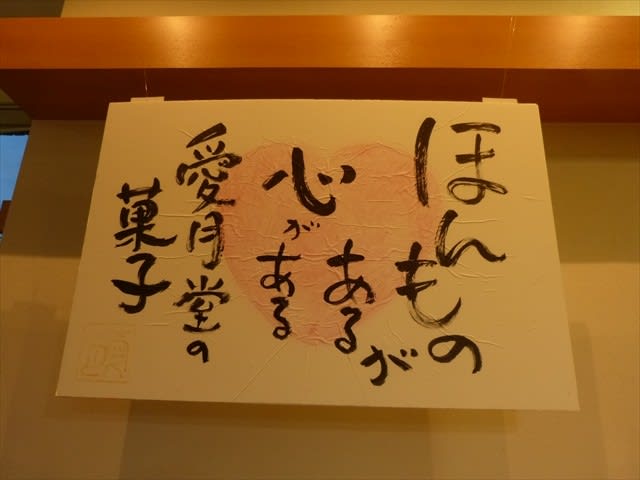 ほんものが
ある
心が
ある
愛月堂の
菓子